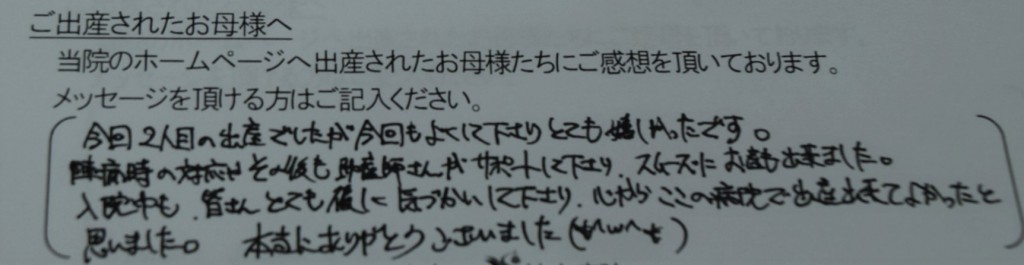 ご出産されたお母様へ
当院のホームページへ出産されたお母様たちにご感想を頂いております。
メッセージを頂ける方はご記入ください。
今回2人目の出産でしたが今回もよくして下さりとても嬉しかったです。
陣痛時の対応はその後も助産師さんがサポートして下さり、スムーズにお産も出来ました。
入院中も、皆さんとても優しく気づかいして下さり、心からここの病院で出産出来てよかったと
思いました。 本当にありがとうございました